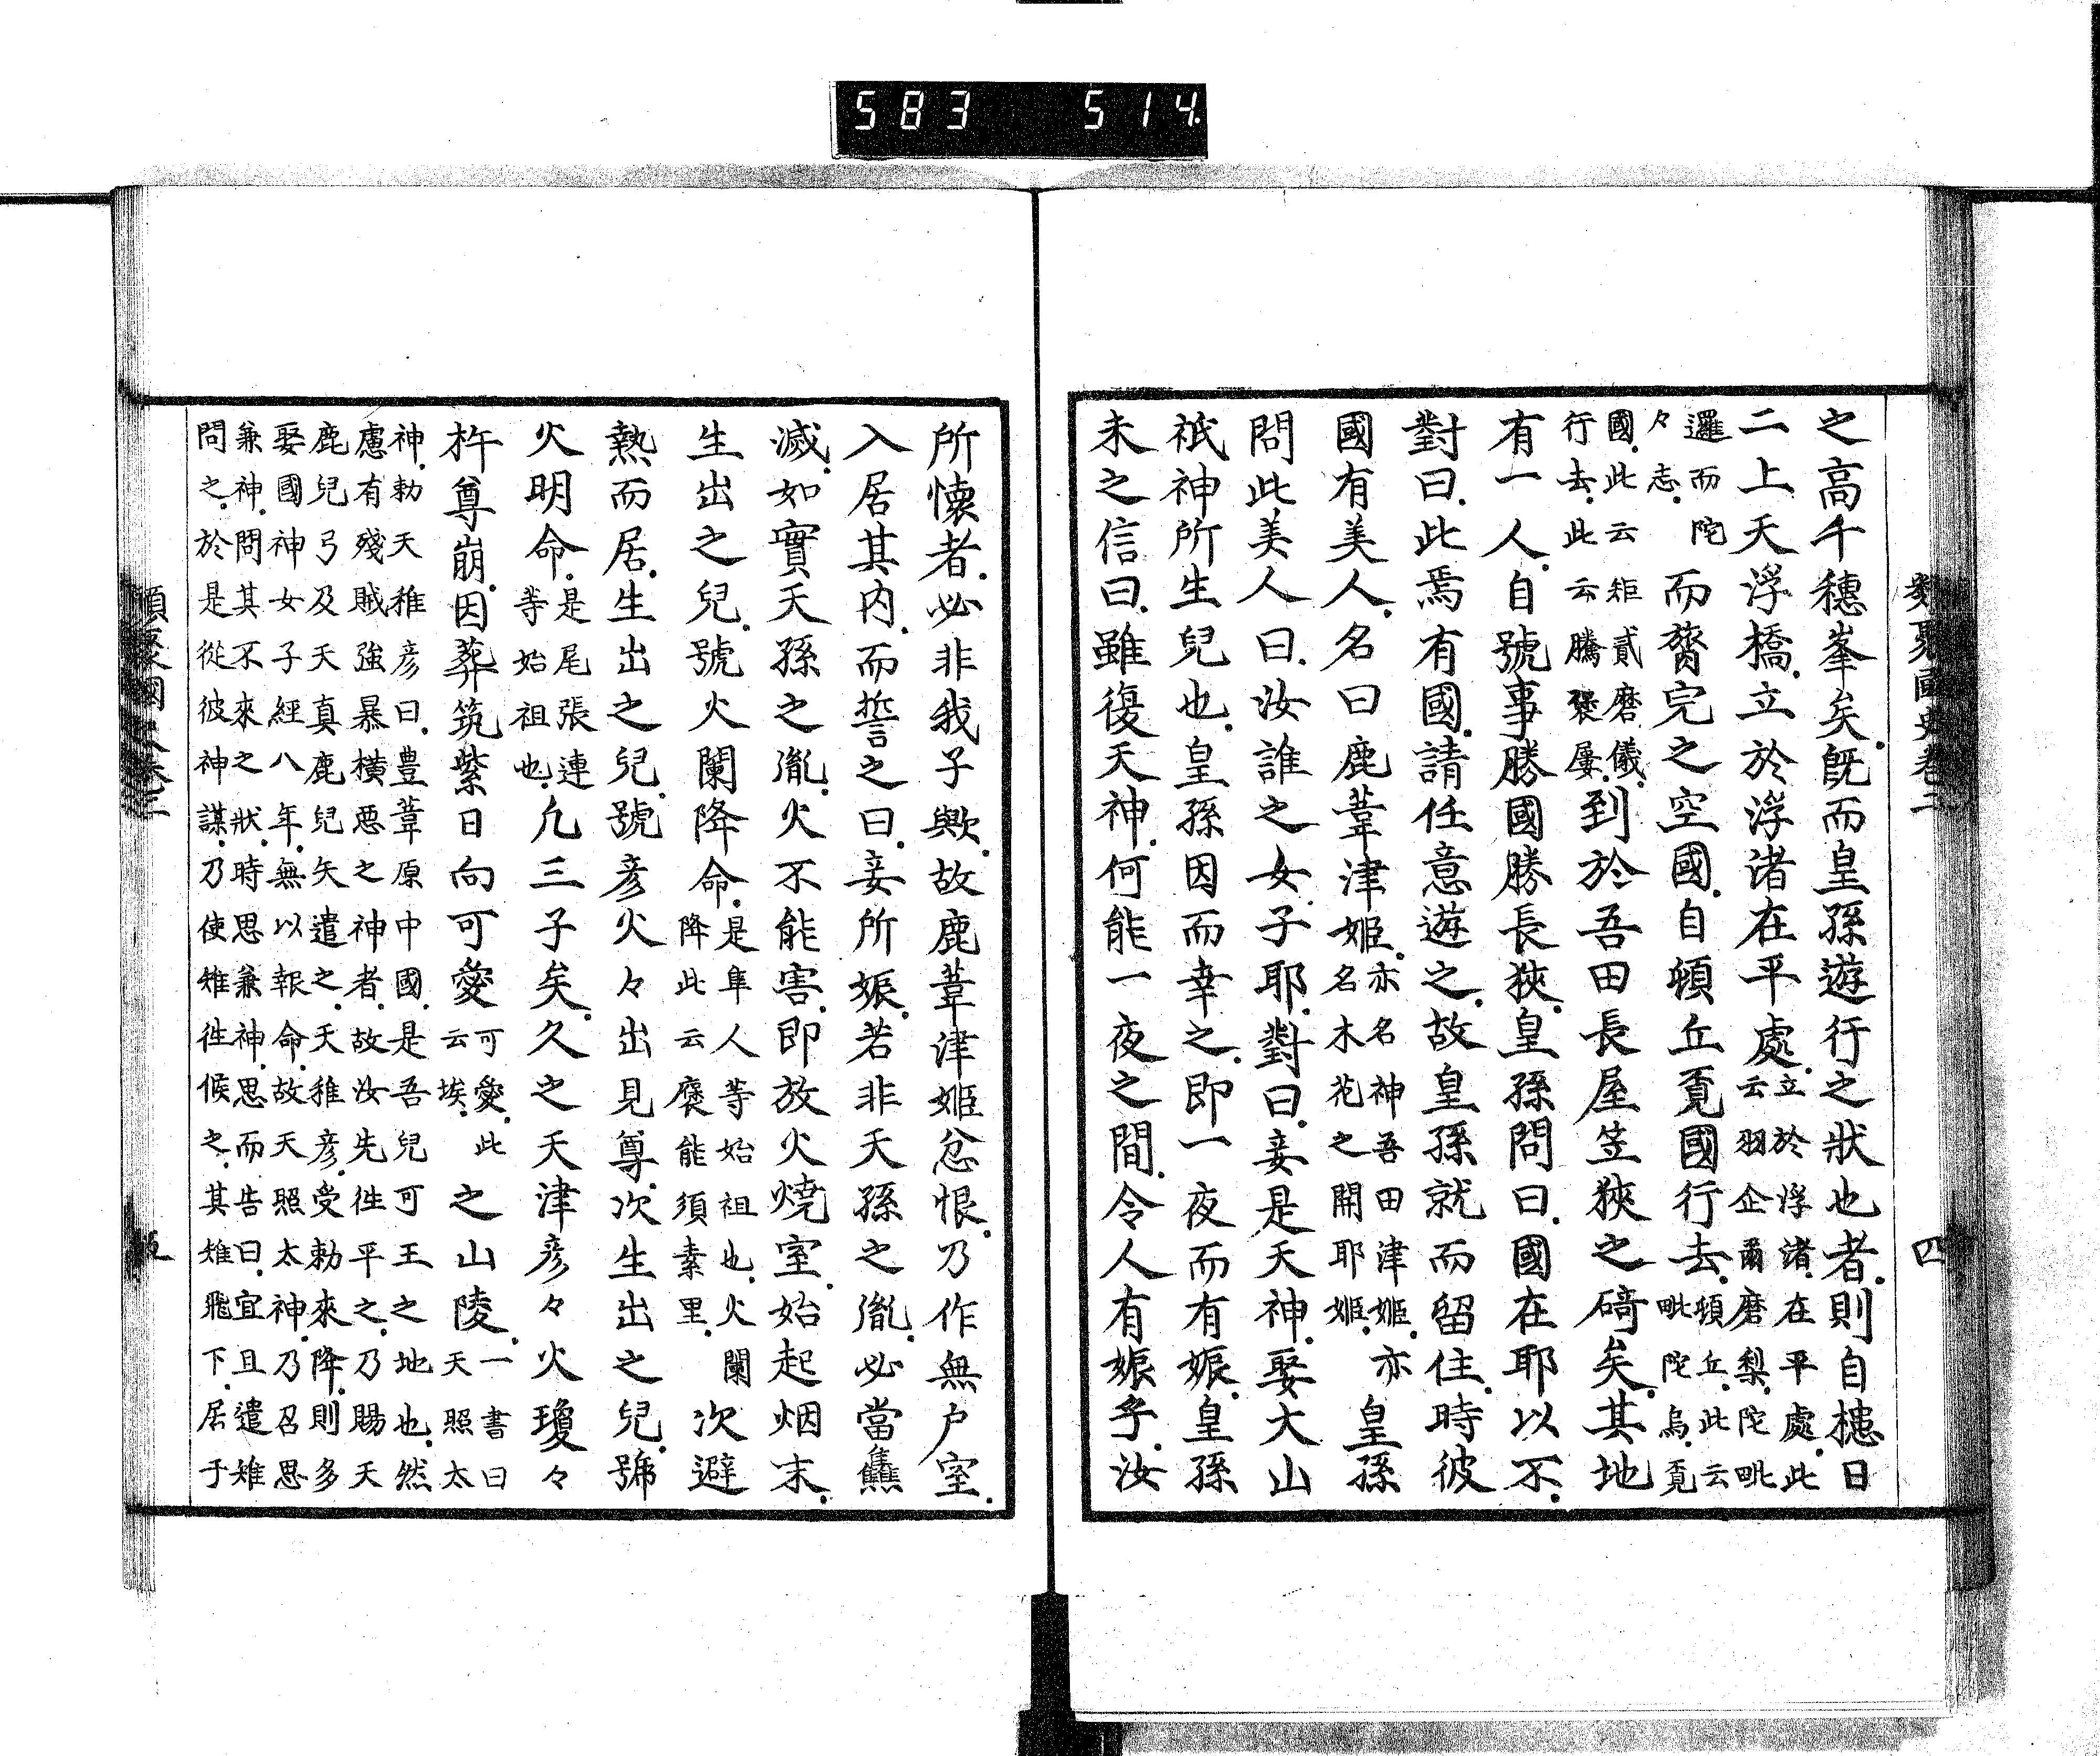 583 514
類聚國史卷二 四
之高千穗峯矣既而皇孫遊行之狀也者則自槵日
二上天浮橋立於浮渚在平處立於浮渚在平處此云羽企爾磨梨陀毗
邏而陀々志而膂宍之空國自頓丘覓國行去頓丘此云毗陀烏覓
國此云矩貳磨儀行去此云騰褒屢到於吾田長屋笠狹之碕矣其地
有一人自號事勝國勝長狹皇孫問曰國在耶以不
對曰此焉有國請任意遊之故皇孫就而留住時彼
國有美人名曰鹿葦津姬亦名神吾田津姬亦名木花之開耶姬皇孫
問此美人曰汝誰之女子耶對曰妾是天神娶大山
祇神所生兒也皇孫因而幸之即一夜而有娠皇孫
未之信曰雖復天神何能一夜之間令人有娠乎汝
所懷者必非我子歟故鹿葦津姬忿恨乃作無戶室
入居其內而誓之曰妾所娠若非天孫之胤必當𤓪
滅如實天孫之胤火不能害即放火燒室始起烟末
生出之兒號火闌降命是隼人等始祖也火闌降此云褒能須素里次避
熱而居生出之兒號彥火々出見尊次生出之兒號
火明命是尾張連等始祖也凡三子矣久之天津彥々火瓊々
杵尊崩因葬筑紫日向可愛可愛此云埃之山陵一書曰天照太
神勅天稚彥曰豊葦原中國是吾兒可王之地也然
慮有殘賊強暴橫惡之神者故汝先往平之乃賜天
鹿兒弓及天真鹿兒矢遣之天稚彥受勅來降則多
娶國神女子經八年無以報命故天照太神乃召思
兼神問其不來之狀時思兼神思而告曰宜且遣雉
問之於是從彼神謀乃使雉往候之其雉飛下居于
類聚國史卷二 五